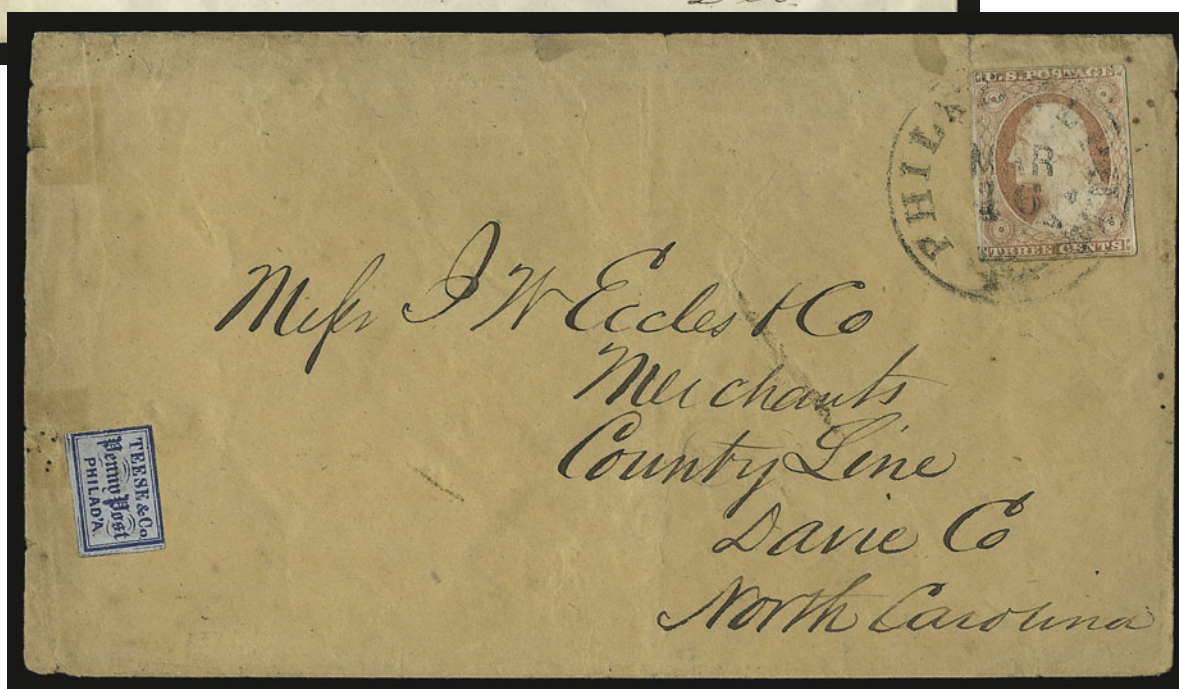 U.S. POSTAGE
PHILA
MAR
16
THREE CENTS
Messrs J W Eccles & Co
Merchants
County Line
Davie Co
North Carolina
TEESE & Co
Penny Post
PHILAD'A.